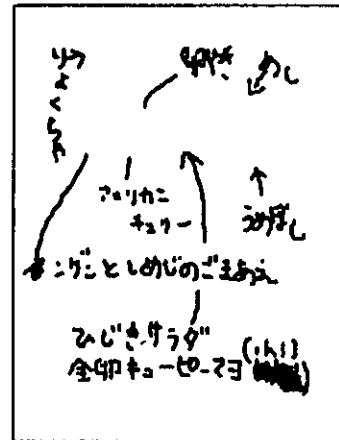 卵やき
めし
アメリカン
チェリー
うめぼし
インゲンとしめじのごまあえ
ひじきサラダ
全卵キューピーマヨ